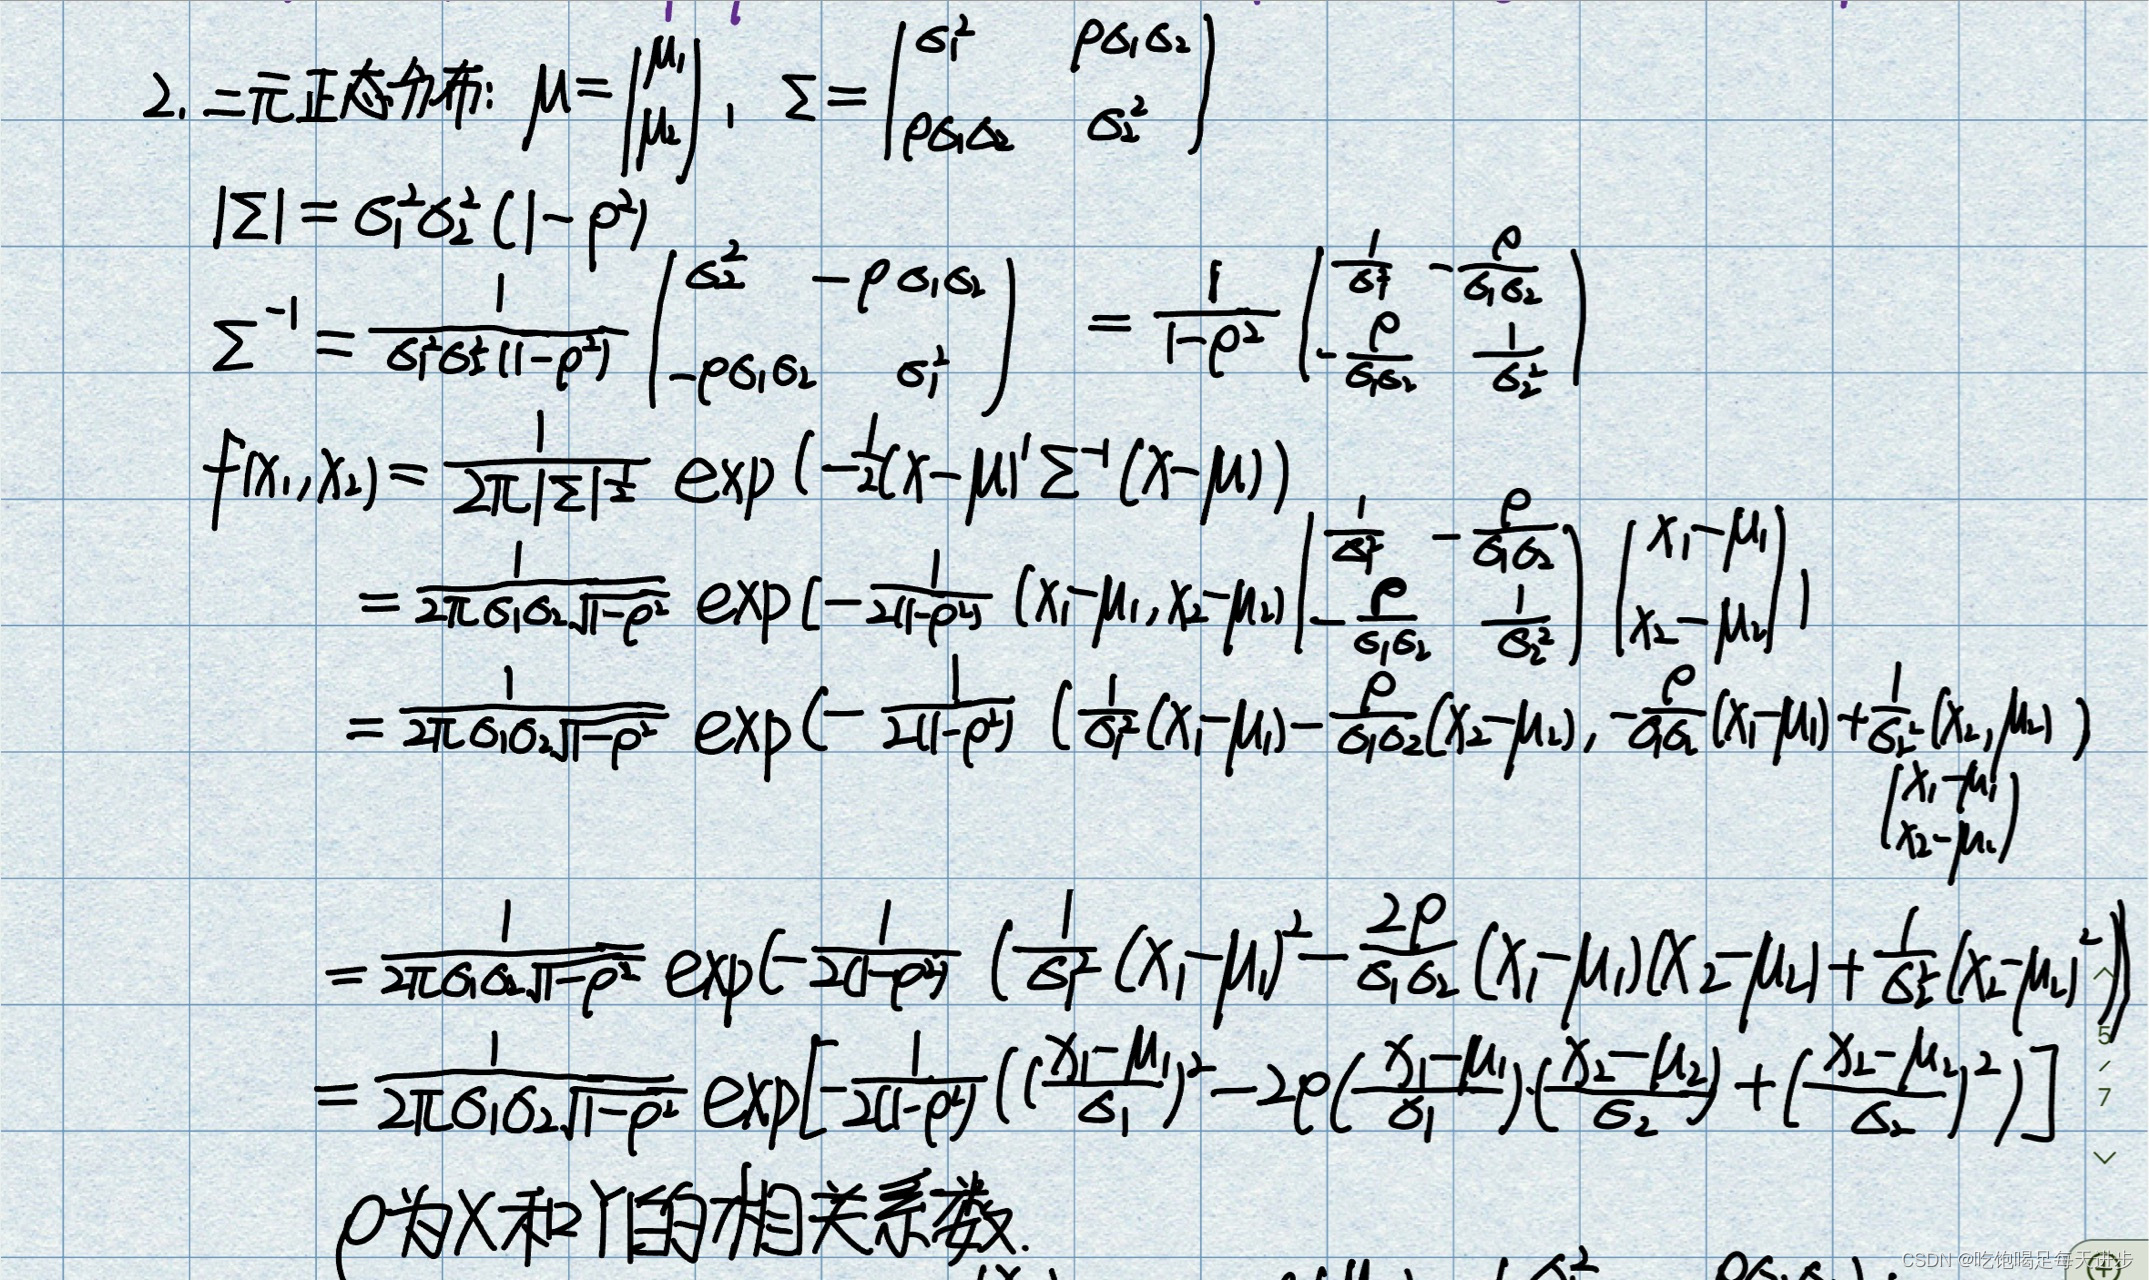 2. 二元正态分布: μ = (μ₁ μ₂), Σ = (σ₁² ρσ₁σ₂ ρσ₁σ₂ σ₂²)
|Σ| = σ₁²σ₂²(1-ρ²)
Σ⁻¹ = 1/(σ₁²σ₂²(1-ρ²)) (σ₂² -ρσ₁σ₂ -ρσ₁σ₂ σ₁²) = 1/(1-ρ²) (1/σ₁² -ρ/(σ₁σ₂) -ρ/(σ₁σ₂) 1/σ₂²)
f(x₁,x₂) = 1/(2π|Σ|^½) exp(-½(x-μ)'Σ⁻¹(x-μ))
= 1/(2πσ₁σ₂√(1-ρ²)) exp(-1/(2(1-ρ²)) (x₁-μ₁, x₂-μ₂) (1/σ₁² -ρ/(σ₁σ₂) -ρ/(σ₁σ₂) 1/σ₂²) (x₁-μ₁ x₂-μ₂))
= 1/(2πσ₁σ₂√(1-ρ²)) exp(-1/(2(1-ρ²)) (1/σ₁² (x₁-μ₁) - ρ/(σ₁σ₂) (x₂-μ₂), -ρ/(σ₁σ₂) (x₁-μ₁) + 1/σ₂² (x₂,μ₂))
(x₁-μ₁ x₂-μ₂)
= 1/(2πσ₁σ₂√(1-ρ²)) exp(-1/(2(1-ρ²)) (1/σ₁² (x₁-μ₁)² - 2ρ/(σ₁σ₂) (x₁-μ₁)(x₂-μ₂) + 1/σ₂² (x₂-μ₂)²))
= 1/(2πσ₁σ₂√(1-ρ²)) exp[-1/(2(1-ρ²)) (((x₁-μ₁)/σ₁)² - 2ρ((x₁-μ₁)/σ₁)·((x₂-μ₂)/σ₂) + ((x₂-μ₂)/σ₂)²)]
5
/
7
ρ为X和Y的相关系数.
CSDN @吃饱喝足每天进步